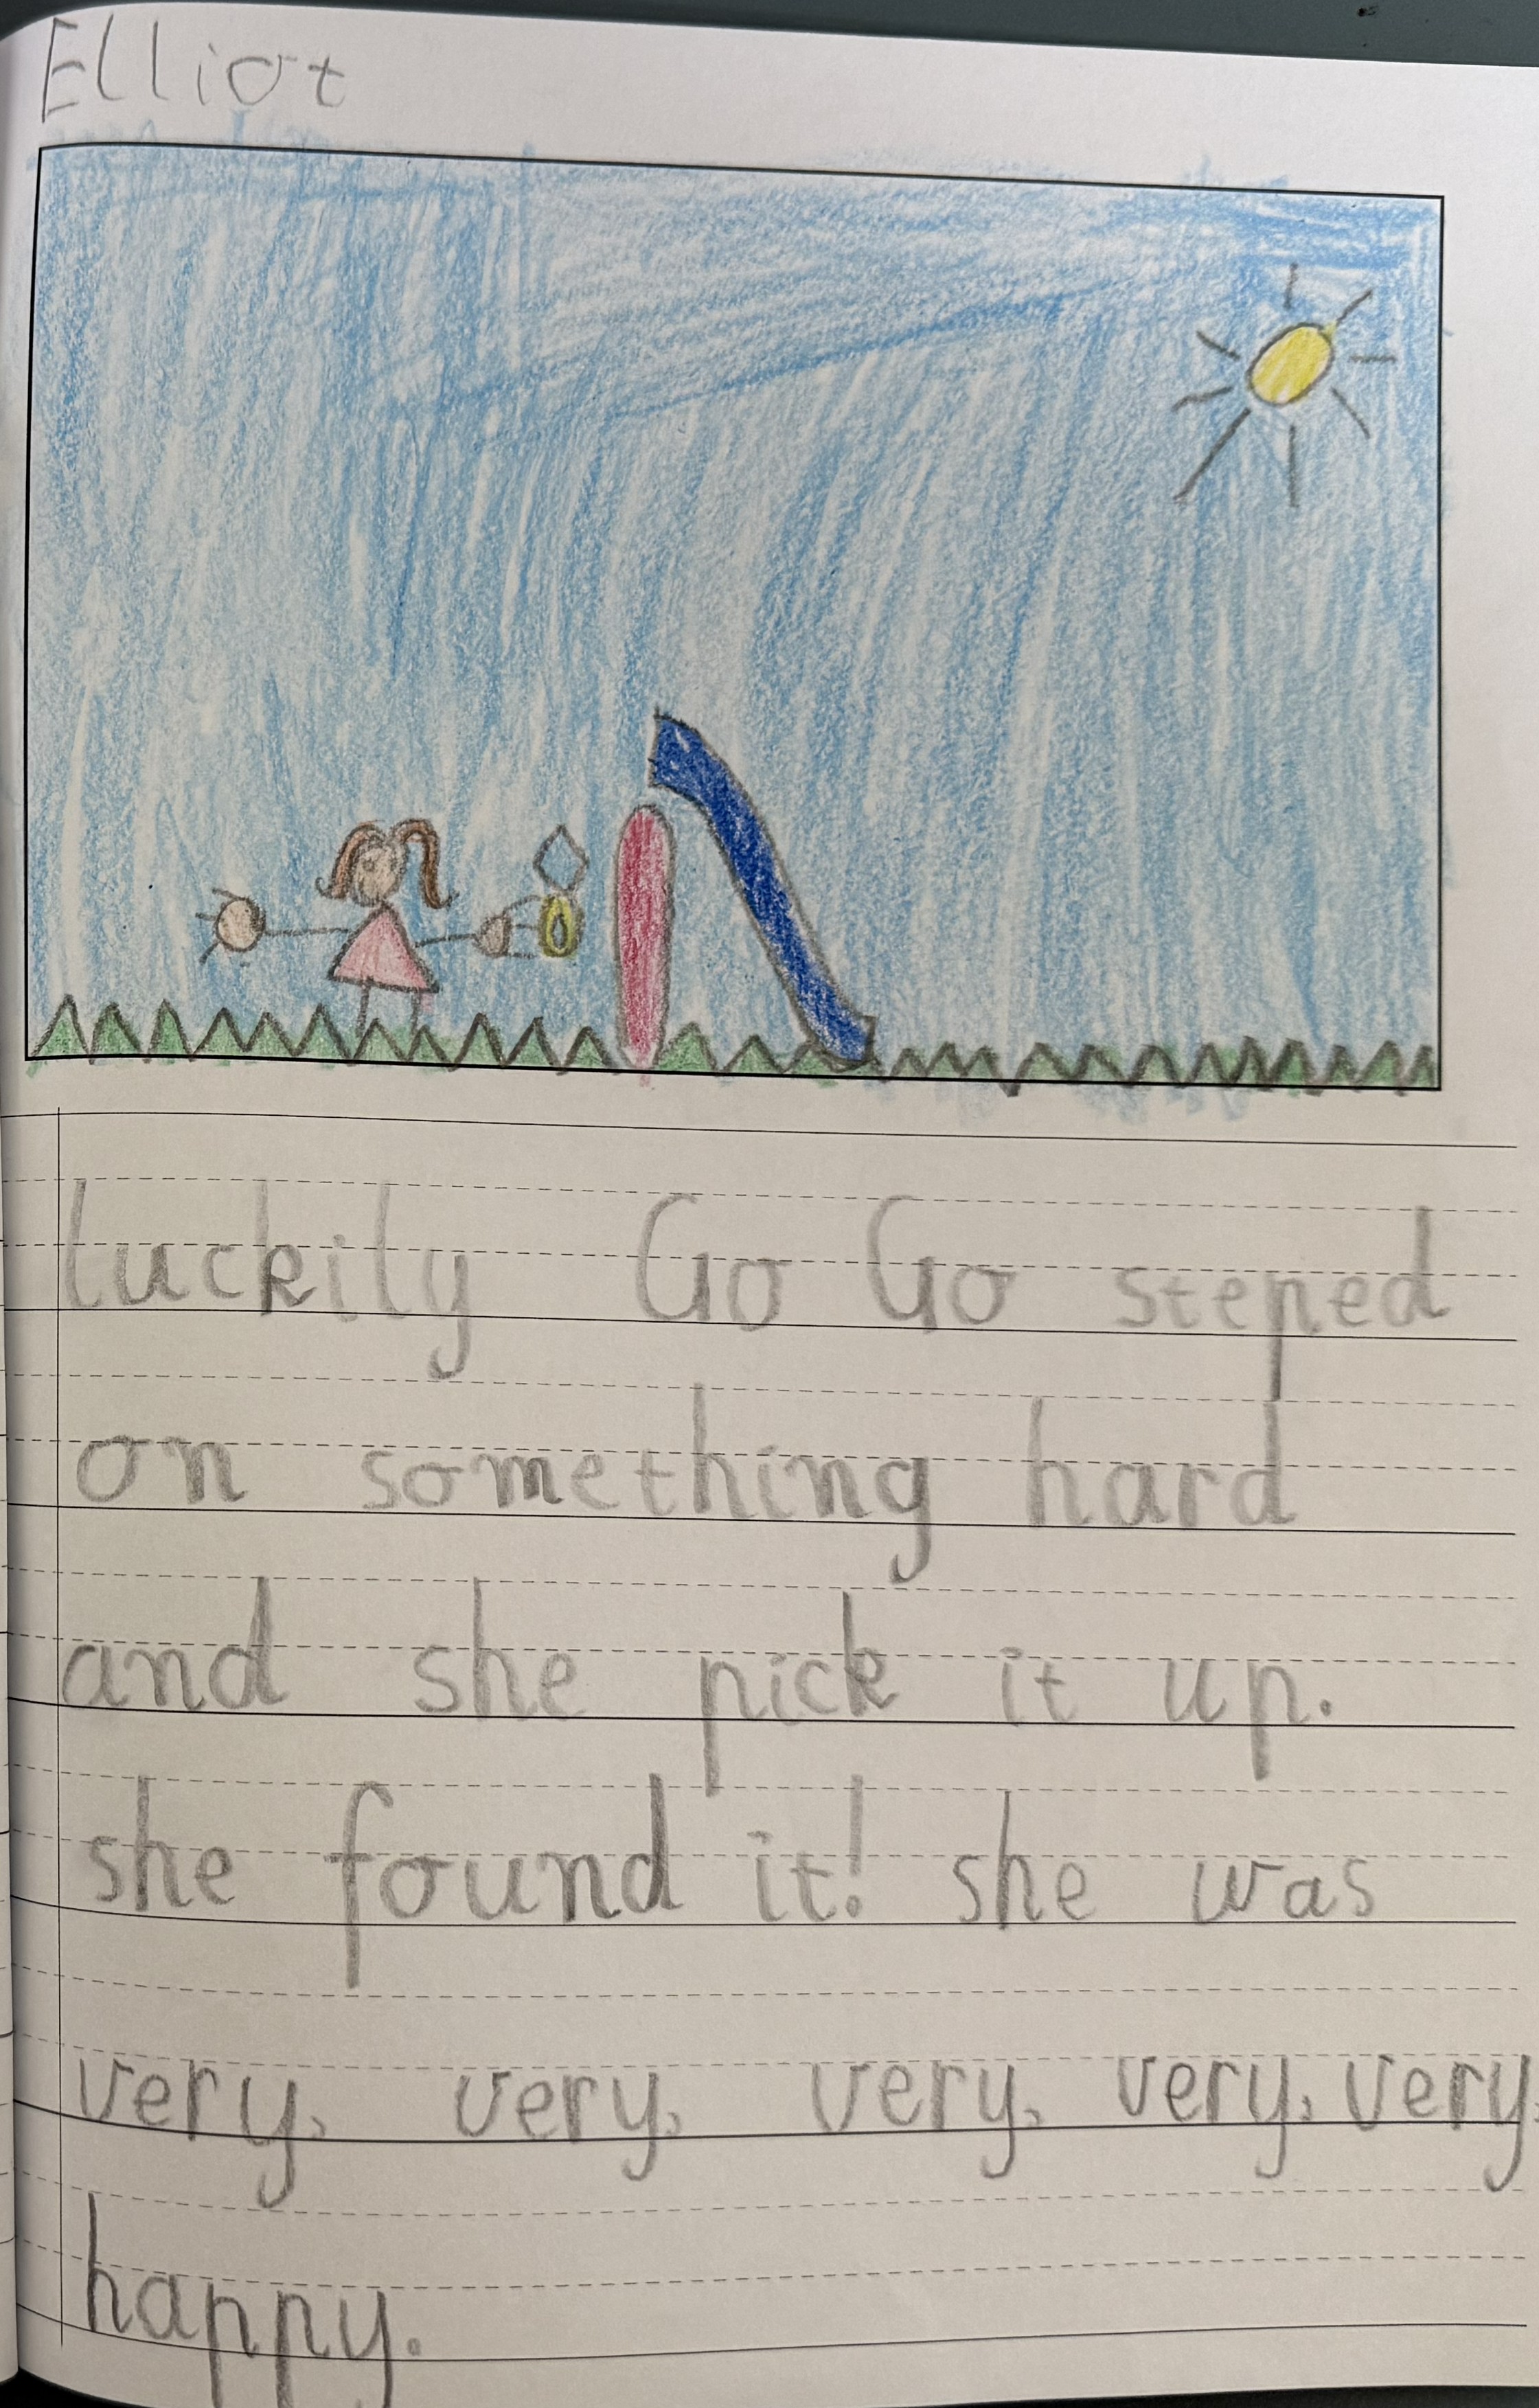 Elliot
luckily Go Go steped
on something hard
and she pick it up.
she found it! she was
very, very, very, very, very,
happy.